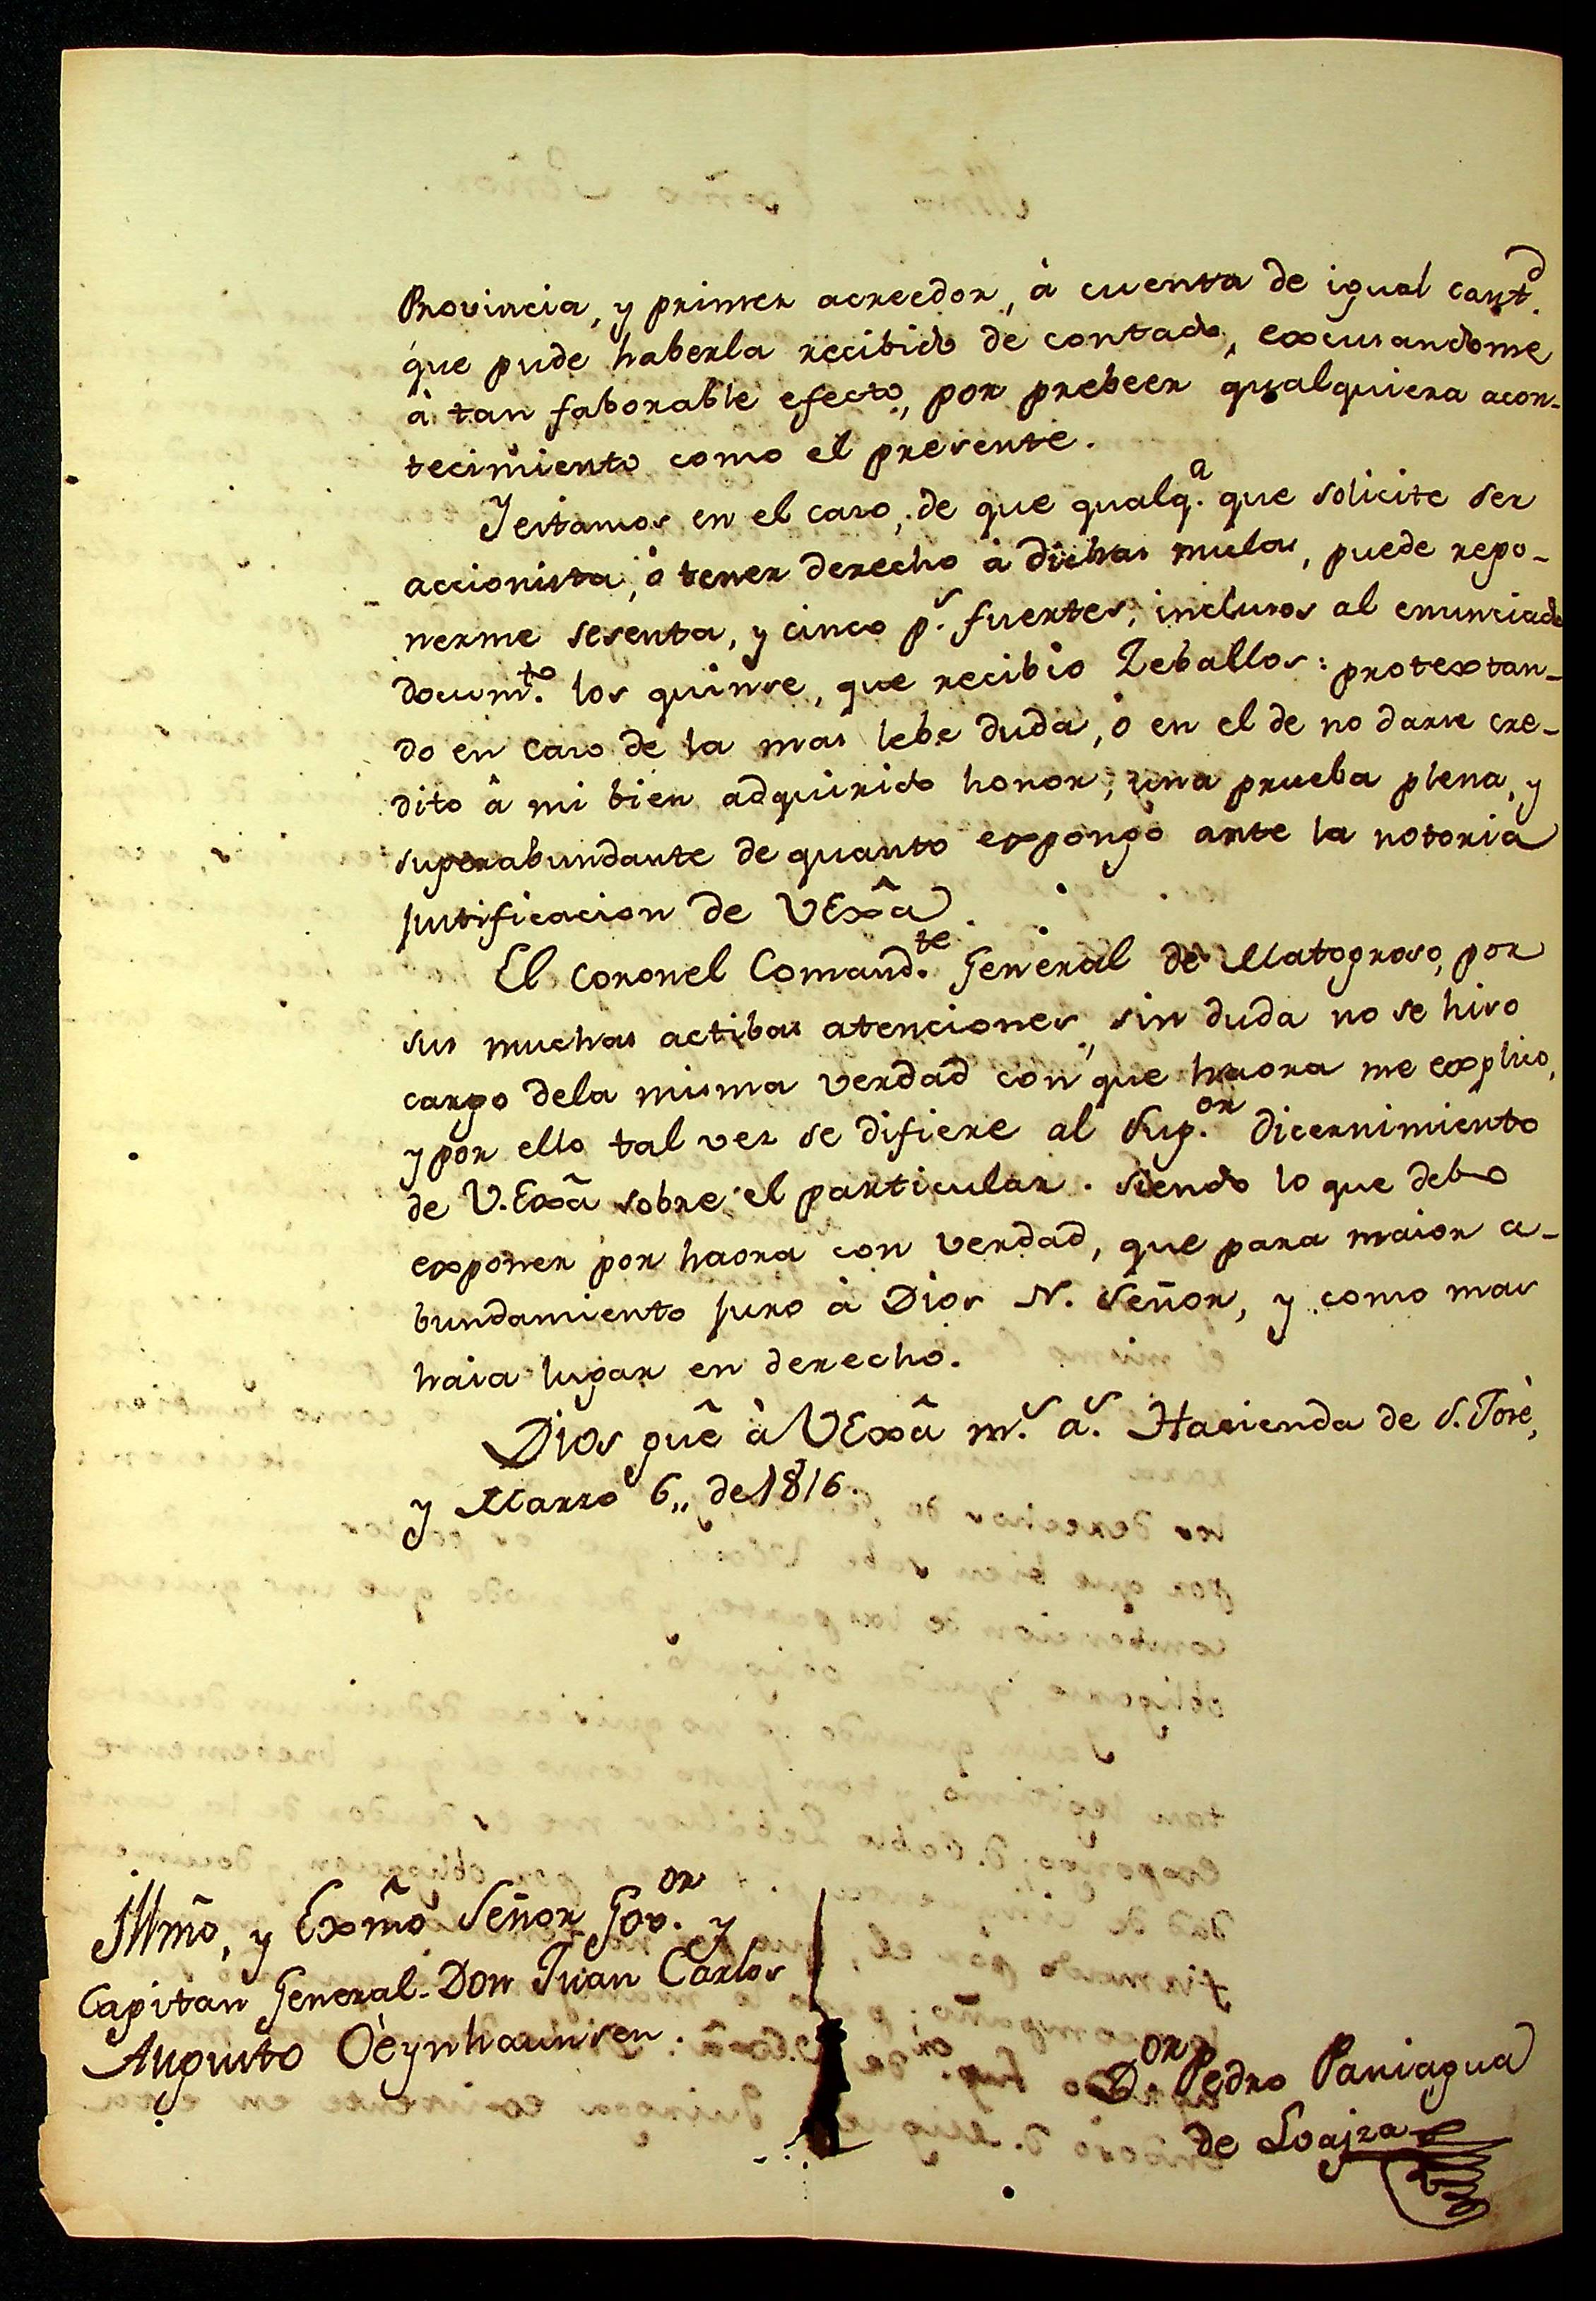 Provincia, y primer acreedor, à cuenta de igual cant.d
que pude haberla recibido de contado, excusandome
à tan faborable efecto, por prebeer qualquiera acon-
tecimiento como el presente.
Y estamos en el caso, de que qualq.a que solicite ser
accionista, ò tener derecho à dichas mulas, puede repo-
nerme sesenta, y cinco p.s fuertes, inclusos al enunciado
docum.to los quinse, que recibio Zeballos: protextan-
do en caso de la mas lebe duda, ò en el de no darse cre-
dito â mi bien adquirido honor, una prueba plena, y
superabundante de quanto expongo ante la notoria
justificacion de VExâ.
El Coronel Comand.te General de Matogroso, por
sus muchas actibas atenciones, sin duda no se hiso
cargo dela misma verdad con que haora me explico,
y por ello tal vez se difiere al Sup.or dicernimiento
de V.Exâ sobre el particular. Siendo lo que debo
exponer por haora con verdad, que para maior a-
bundamiento juro à Dios N. Señor, y como mas
haia lugar en derecho.
Dios guê à VExâ m.s a.s Hacienda de S. Josè,
y Marzo 6,, de 1816.
Illmõ, y Exmõ Señor Gov.or y
Capitan General Don Juan Carlos
Augusto Oèynhaunsen.
D.or Pedro Paniagua
de Loajza